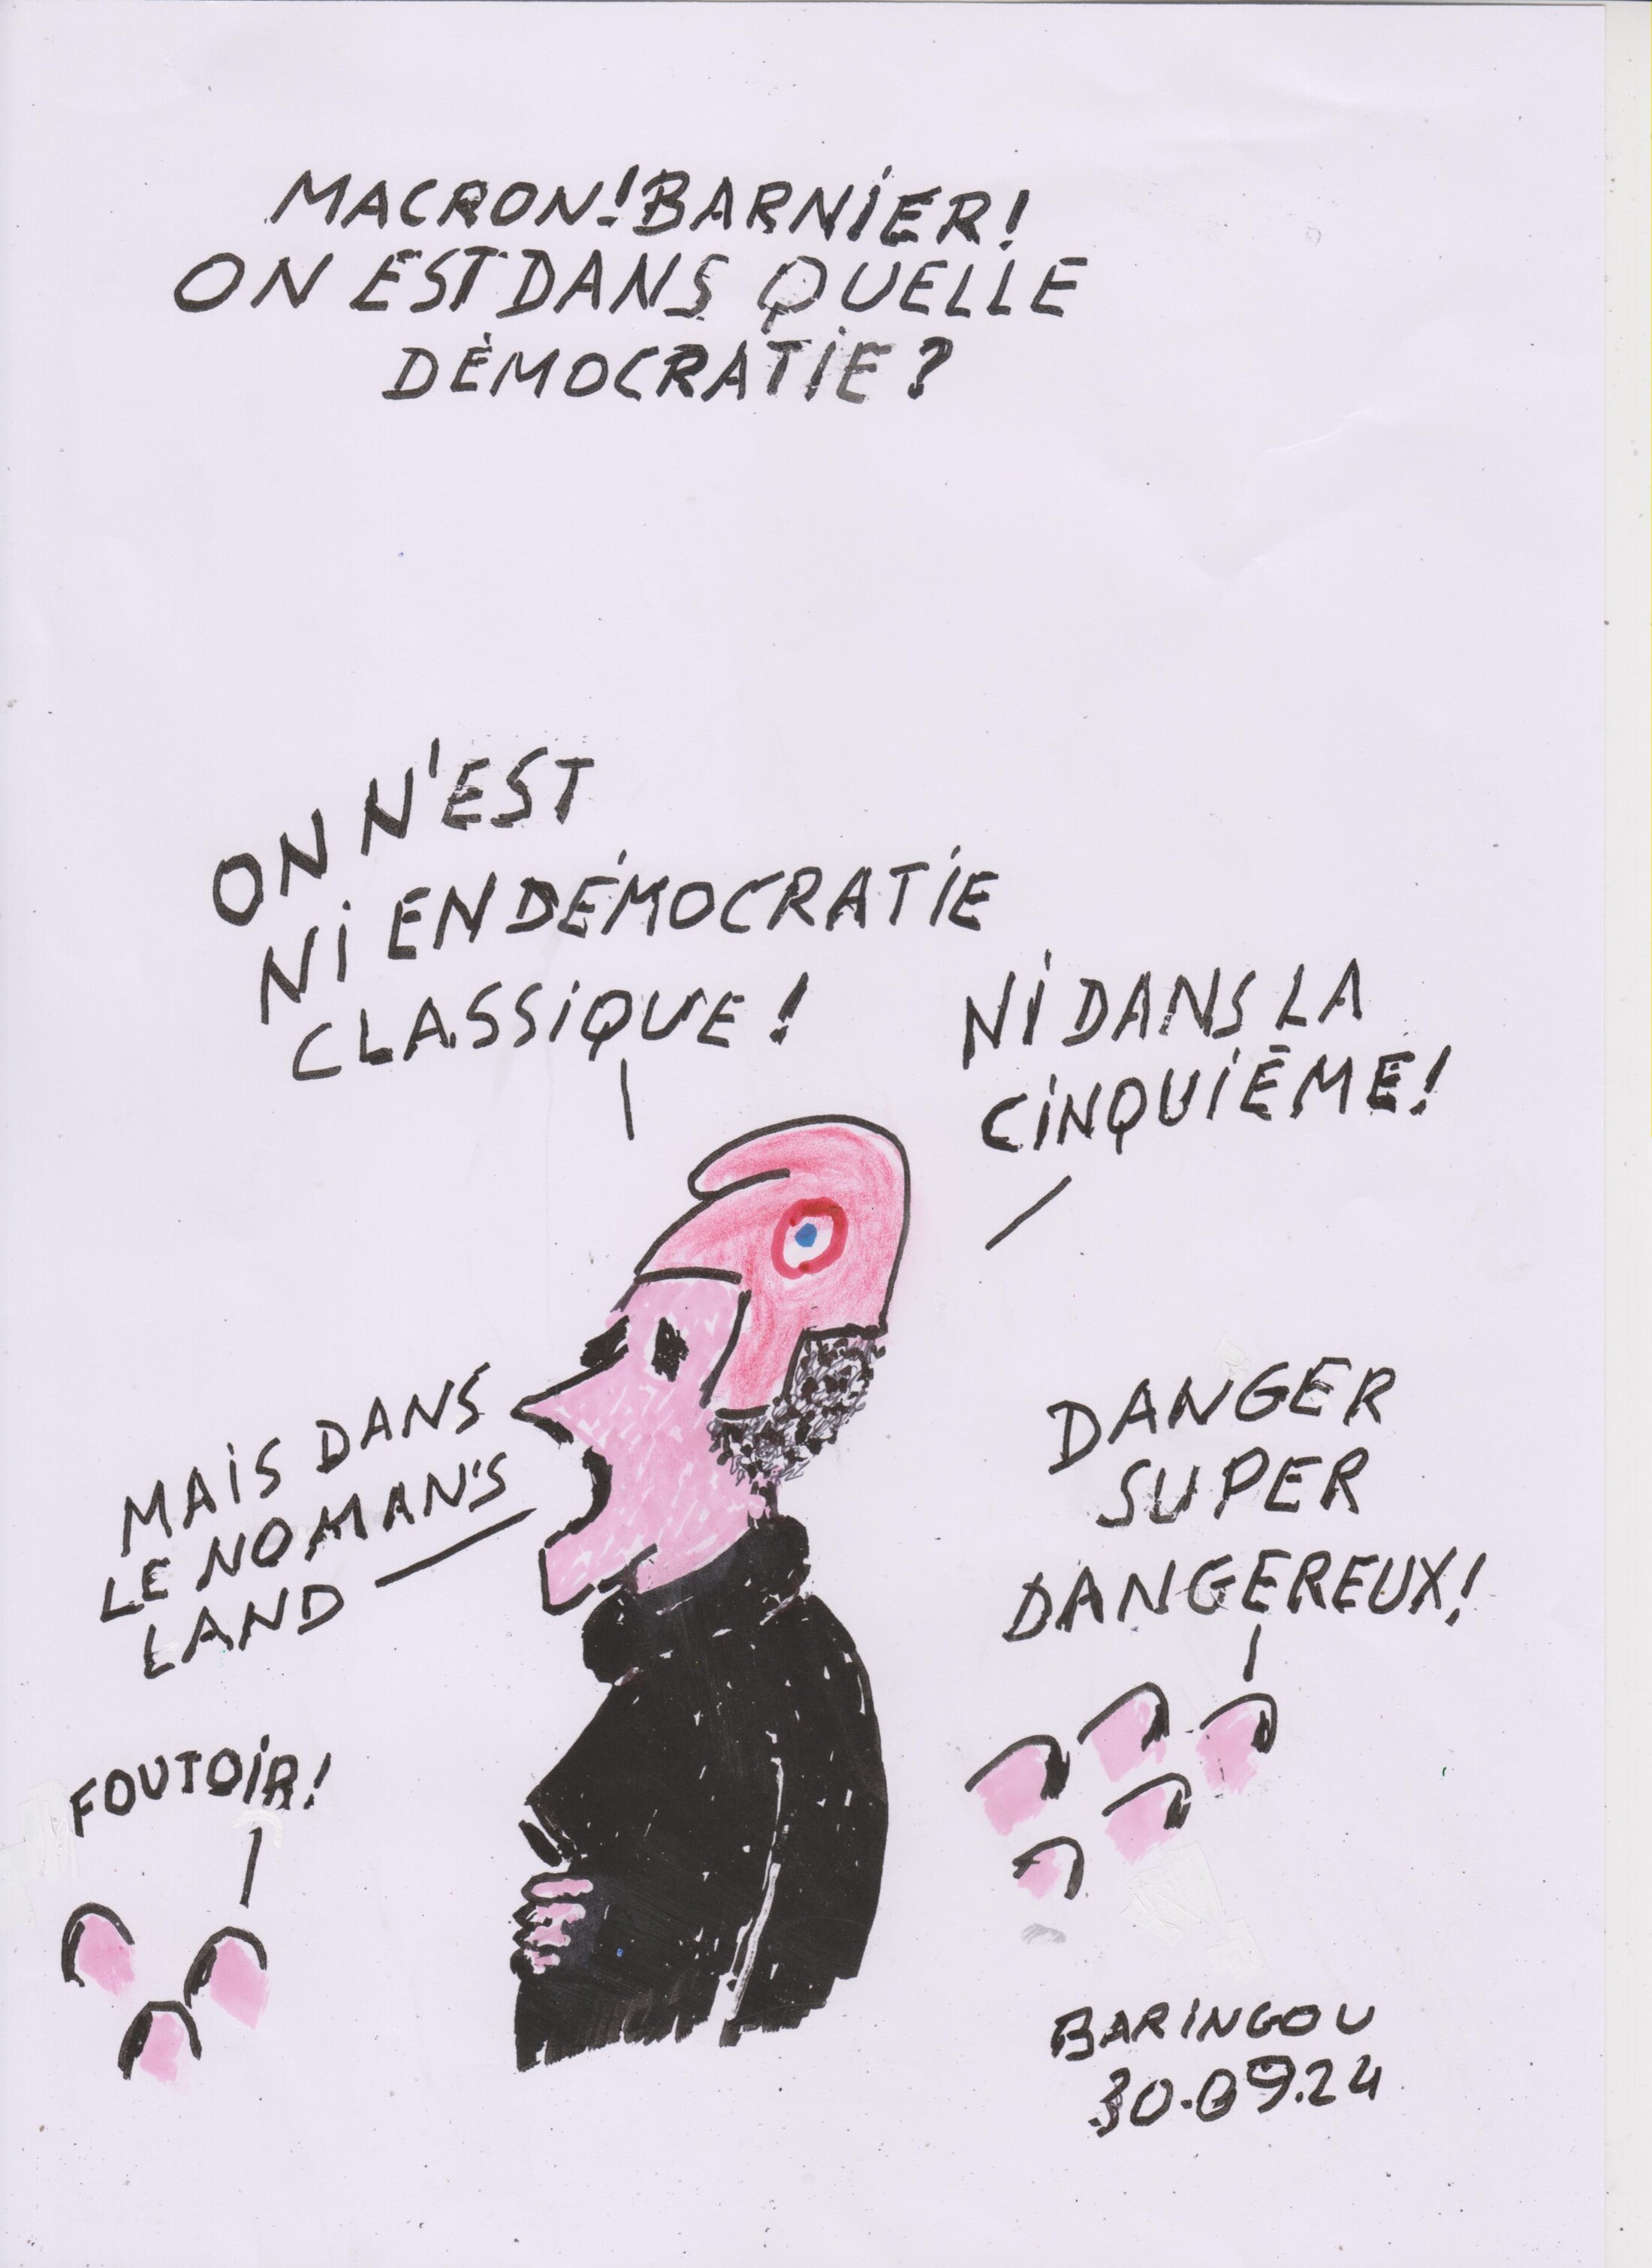 MACRON! BARNIER!
ON EST DANS QUELLE
DÉMOCRATIE?
ON N'EST
NI EN DÉMOCRATIE
CLASSIQUE!
NI DANS LA
CINQUIÈME!
MAIS DANS
LE NOMAN'S
LAND
DANGER
SUPER
DANGEREUX!
FOUTOIR!
BARINGOU
30.09.24